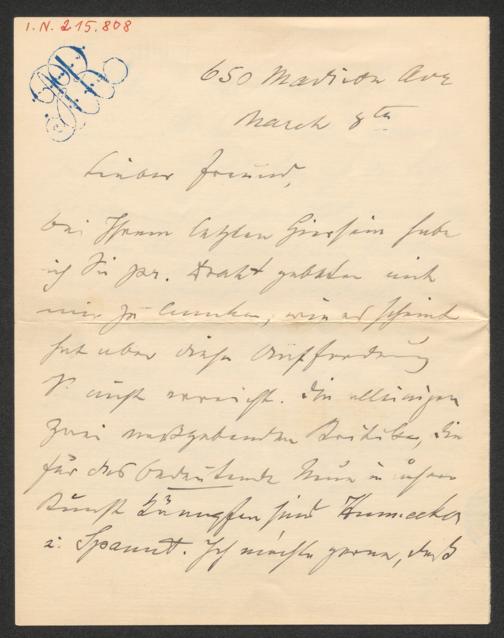 I.N. 215.808
650 Madison Ave
March 8th
Lieber Freund,
bei Ihrem letzten Hiersein habe
ich Sie pr. Draht gebeten mit
mir zu lunchen, wie es scheint
hat aber diese Aufforderung
S. nicht erreicht. Die alleinigen
zwei maßgebenden Kritiker, die
für das bedeutende Neue in ihrer
Kunst kämpfen sind Huneker
u. Spanuth. Ich möchte gerne, daß